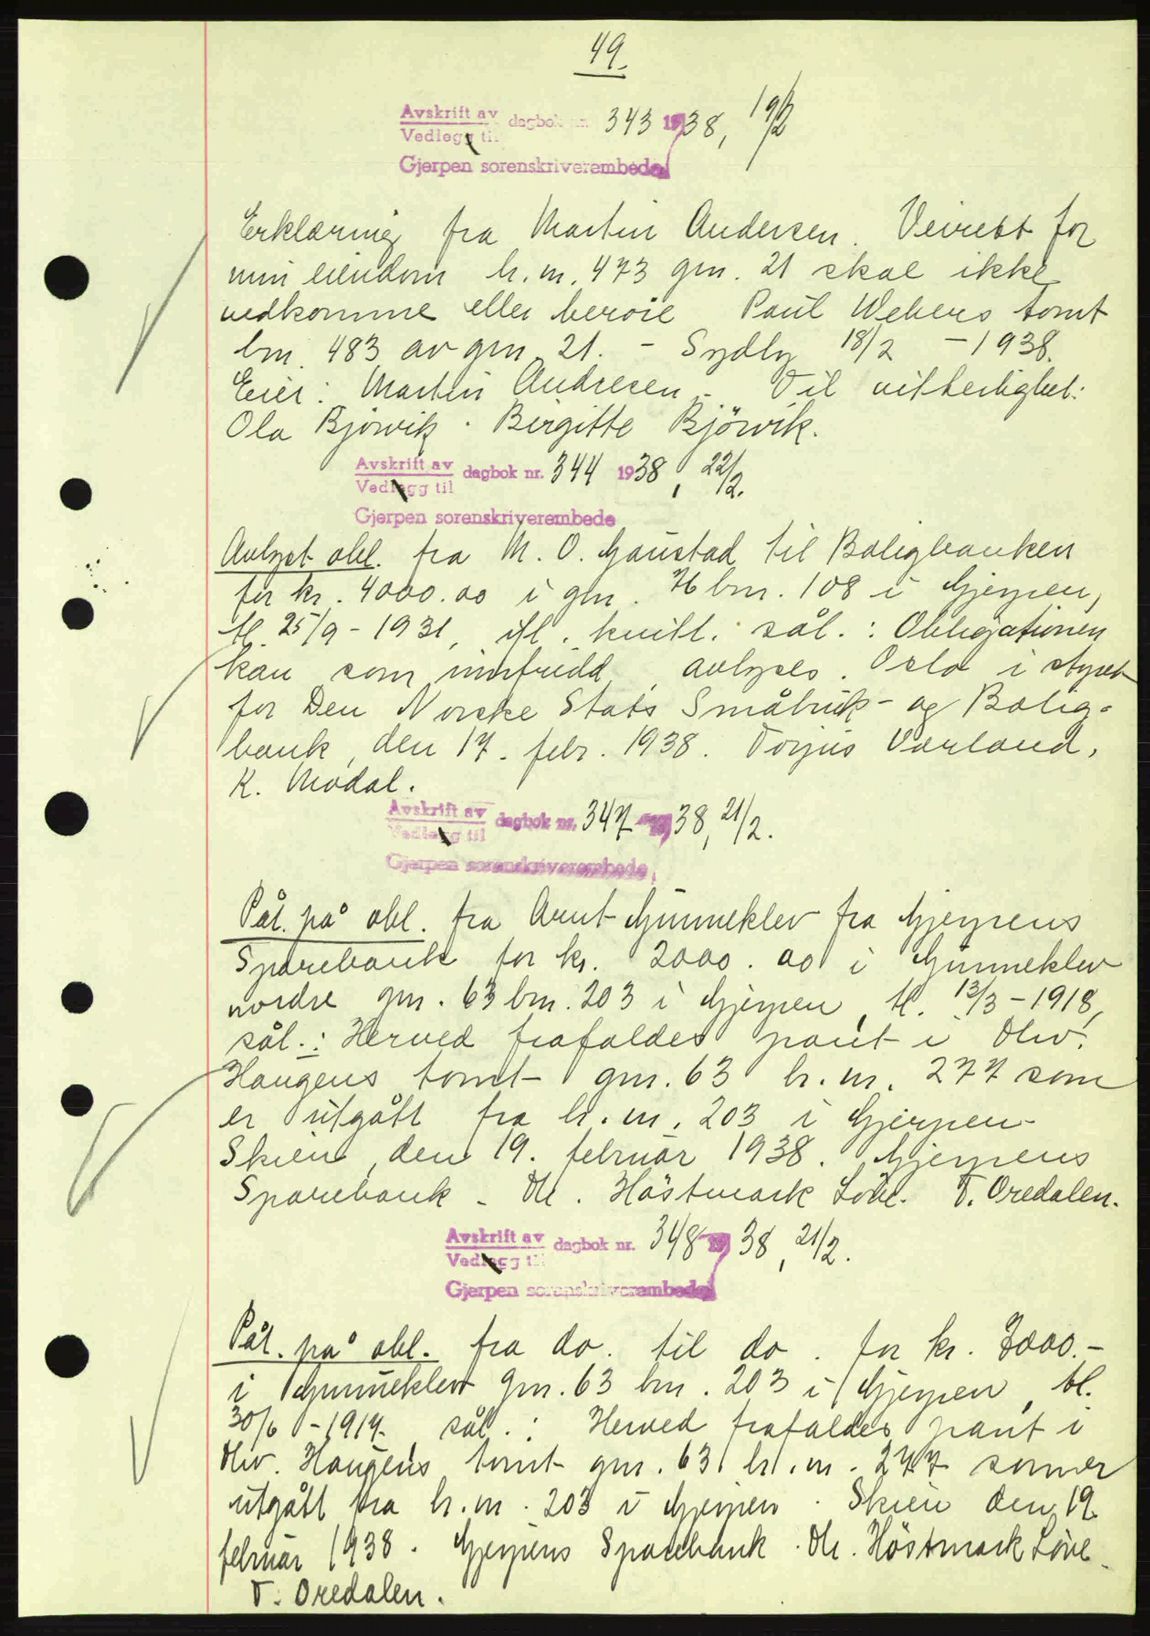 49.
Avskrift av dagbok nr. 343 1938, 19/2
Vedlegg til
Gjerpen sorenskriverembede
Erklæring fra Martin Andersen. Veirett for
min eiendom b.m. 473 gm. 21 skal ikke
vedkomme eller beröre Paul Webers tomt
bm. 483 av gm 21. - Sydby 18/2 - 1938.
Eier: Martin Andresen. Til vitterlighet:
Ola Bjørvik. Birgitte Björvik.
Avskrift av dagbok nr. 344 1938, 22/2.
Vedlegg til
Gjerpen sorenskriverembede
Avlyst obl. fra M. O. Gaustad til Boligbanken
for kr. 4000.00 i gm. 76 bm. 108 i Gjerpen,
tl. 25/9 - 1931, ifl. kvitt. sål.: Obligationen
kan som innfridd avlyses. Oslo i styret
for Den Norske Stats Småbruk- og Bolig-
bank, den 17. febr. 1938. Torjus Værland.
K. Modal.
Avskrift av dagbok nr. 347 1938, 21/2.
Vedlegg til
Gjerpen sorenskriverembede
Påt. på obl. fra Arnt Gunneklev fra Gjerpens
Sparebank for kr. 2000.00 i Gunneklev
nordre gm. 63 bm. 203 i Gjerpen, tl. 13/3 - 1918,
sål.: Herved frafaldes pant i Olw.
Haugens tomt gm. 63 b.m. 277 som
er utgått fra b.m. 203 i Gjerpen.
Skien, den 19. februar 1938. Gjerpens
Sparebank. Ole. Höstmark Löve. T. Oredalen.
Avskrift av dagbok nr. 348 1938, 21/2.
Vedlegg til
Gjerpen sorenskriverembede
Påt. på obl. fra do. til do. for kr. 3000.-
i Gunneklev gm. 63 bm. 203 i Gjerpen, tl.
30/6 - 1914. sål.: Herved frafaldes pant i
Olw. Haugens tomt gm. 63 b.m. 277 som er
utgått fra b.m. 203 i Gjerpen. Skien den 19.
februar 1938. Gjerpens Sparebank. Ole. Höstmark Löve.
T. Oredalen.